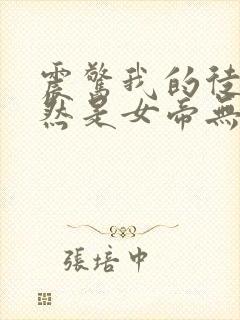 震驚我的徒
然是女帝無
張培中